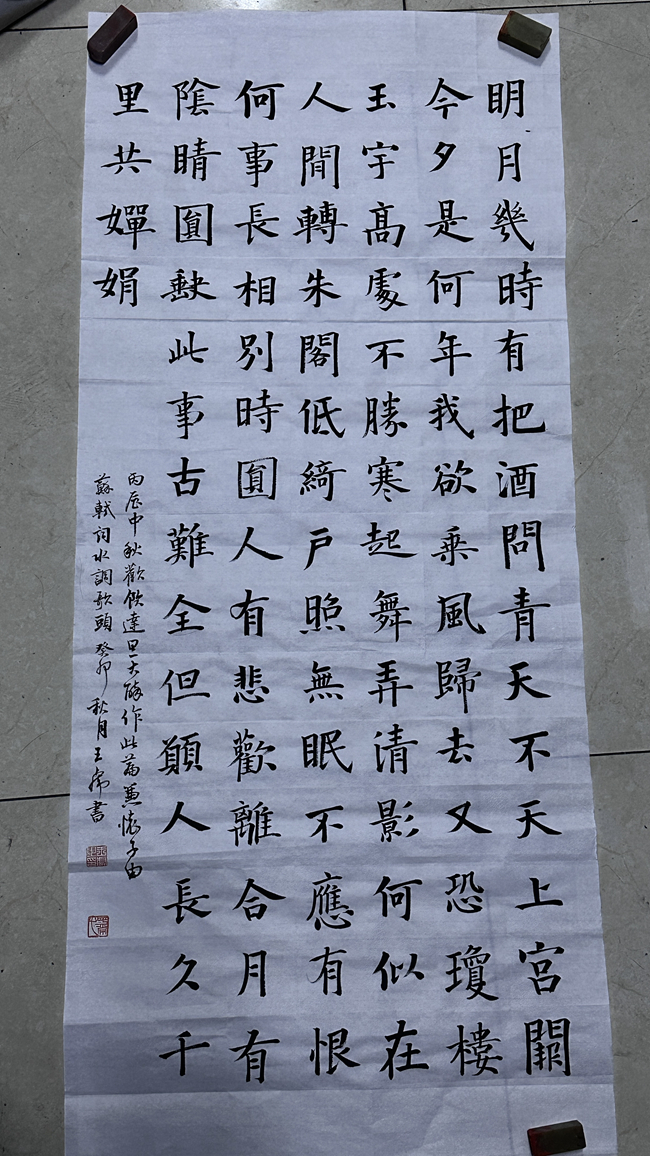 明月幾時有把酒問青天不天上宮闕
今夕是何年我欲乘風歸去又恐瓊樓
玉宇高處不勝寒起舞弄清影何似在
人間轉朱閣低綺戶照無眠不應有恨
何事長相別時圓人有悲歡離合月有
陰晴圓缺此事古難全但願人長久千
里共嬋娟
丙辰中秋歡飲達旦大醉作此篇兼懷子由
蘇軾詞水調歌頭癸卯秋月王書